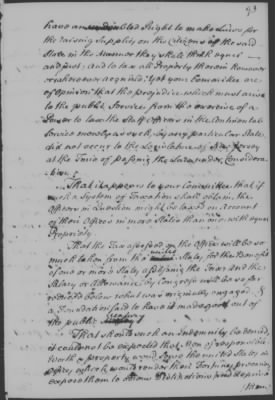 93
have an undoubted Right to make Laws for
the raising Supplies on the Citizens of the said
State in the manner they shall think equal
and just. And to tax all Property therein
acquired; Yet your Committee are
of Opinion that the prejudice which must arise
to the public Service from the exercise of a
Power to tax the Staff Officers in the Continental
Service merely as such, by any particular State,
did not occur to the Legislature of New Jersey
at the Time of passing the Law under Considera-
tion.
That it appears to your Committee that if
such a System of Taxation shall obtain, the
Officers in Question might be taxed on Account
of their Offices in more States than one with equal
Propriety.
That the Tax assessed on the Officer will be so
much taken from the States, for the Benefit
of one or more States assessing the Taxes and the
Salary or Allowance by Congress will be so
reduced below what was originally engaged &
a Foundation laid to have it made good out of
the public
That should such an Indemnity be denied,
it could not be expected that Men of responsible
worth & property would serve the United States in
Offices which would render their Fortunes precarious
expose them to and deprive
them